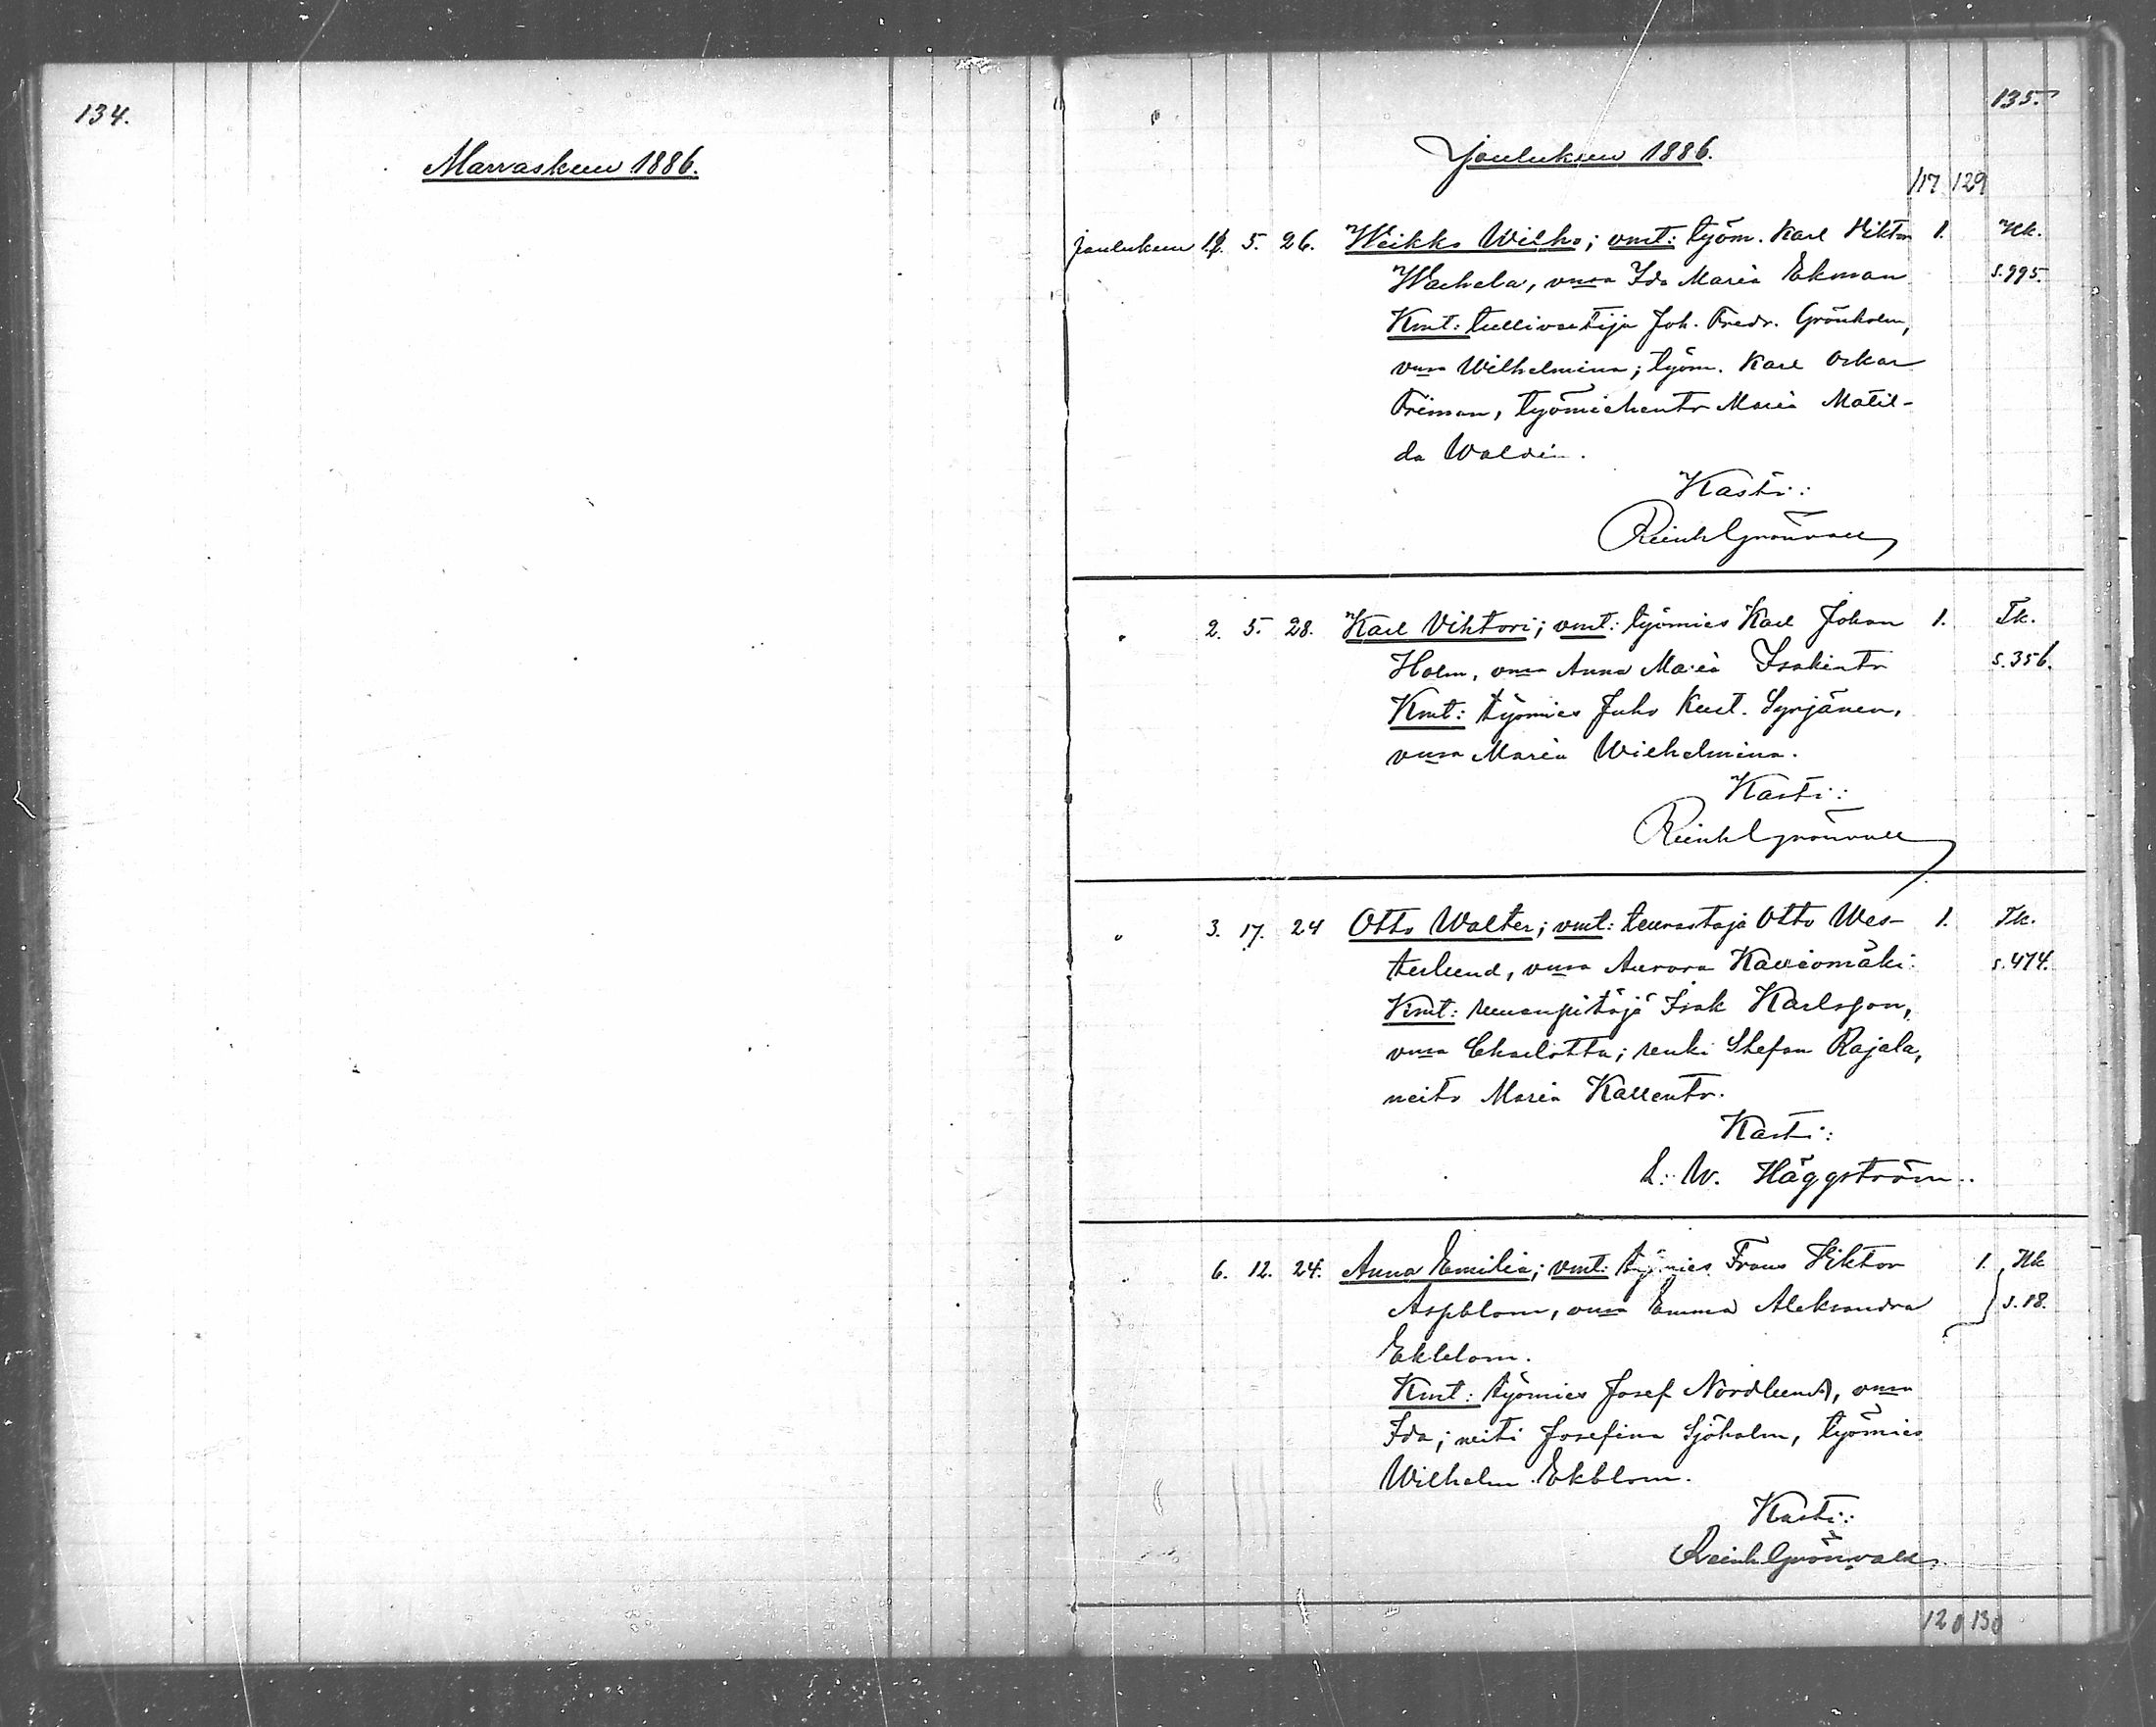 134.
Marraskuu 1886.
135.
Joulukuu 1886.
117 129
Joulukuu 1. 5. 26. Weikko Wilho; vmt: työm. Karl Viktor 1. Uk.
Wachela, vmsa Ida Maria Ekman s. 995.
Kmt: tullivartija Joh. Fredr. Grönholm,
vmsa Wilhelmina; työm. Karl Oskar
Friman, työmiehentr Maria Matil-
da Waldén.
Kasti:
Reinh Grönvall
" 2. 5. 28. Karl Vihtori; vmt: työmies Karl Johan 1. Tk.
Holm, vmsa Anna Maria Isakintr s. 356.
Kmt: työmies Juho Kust. Syrjänen,
vmsa Maria Wilhelmina.
Kasti:
Reinh Grönvall
" 3. 17. 24 Otto Walter; vmt: teurastaja Otto Wes- 1. Tk.
terlund, vmsa Aurora Kaviomäki. s. 474.
Kmt: ruuanpitäjä Isak Karlsson,
vmsa Charlotta; renki Stefan Rajala,
neito Maria Kallentr.
Kasti:
K. W. Häggström.
" 6. 12. 24. Anna Emilia; vmt: työmies Frans Viktor 1. Uk
Aspblom, vmsa Emma Aleksandra s. 18.
Ekblom.
Kmt: työmies Josef Nordlund, vmsa
Ida; neiti Josefina Sjöholm, työmies
Wilhelm Ekblom.
Kasti:
Reinh Grönvall
120 130